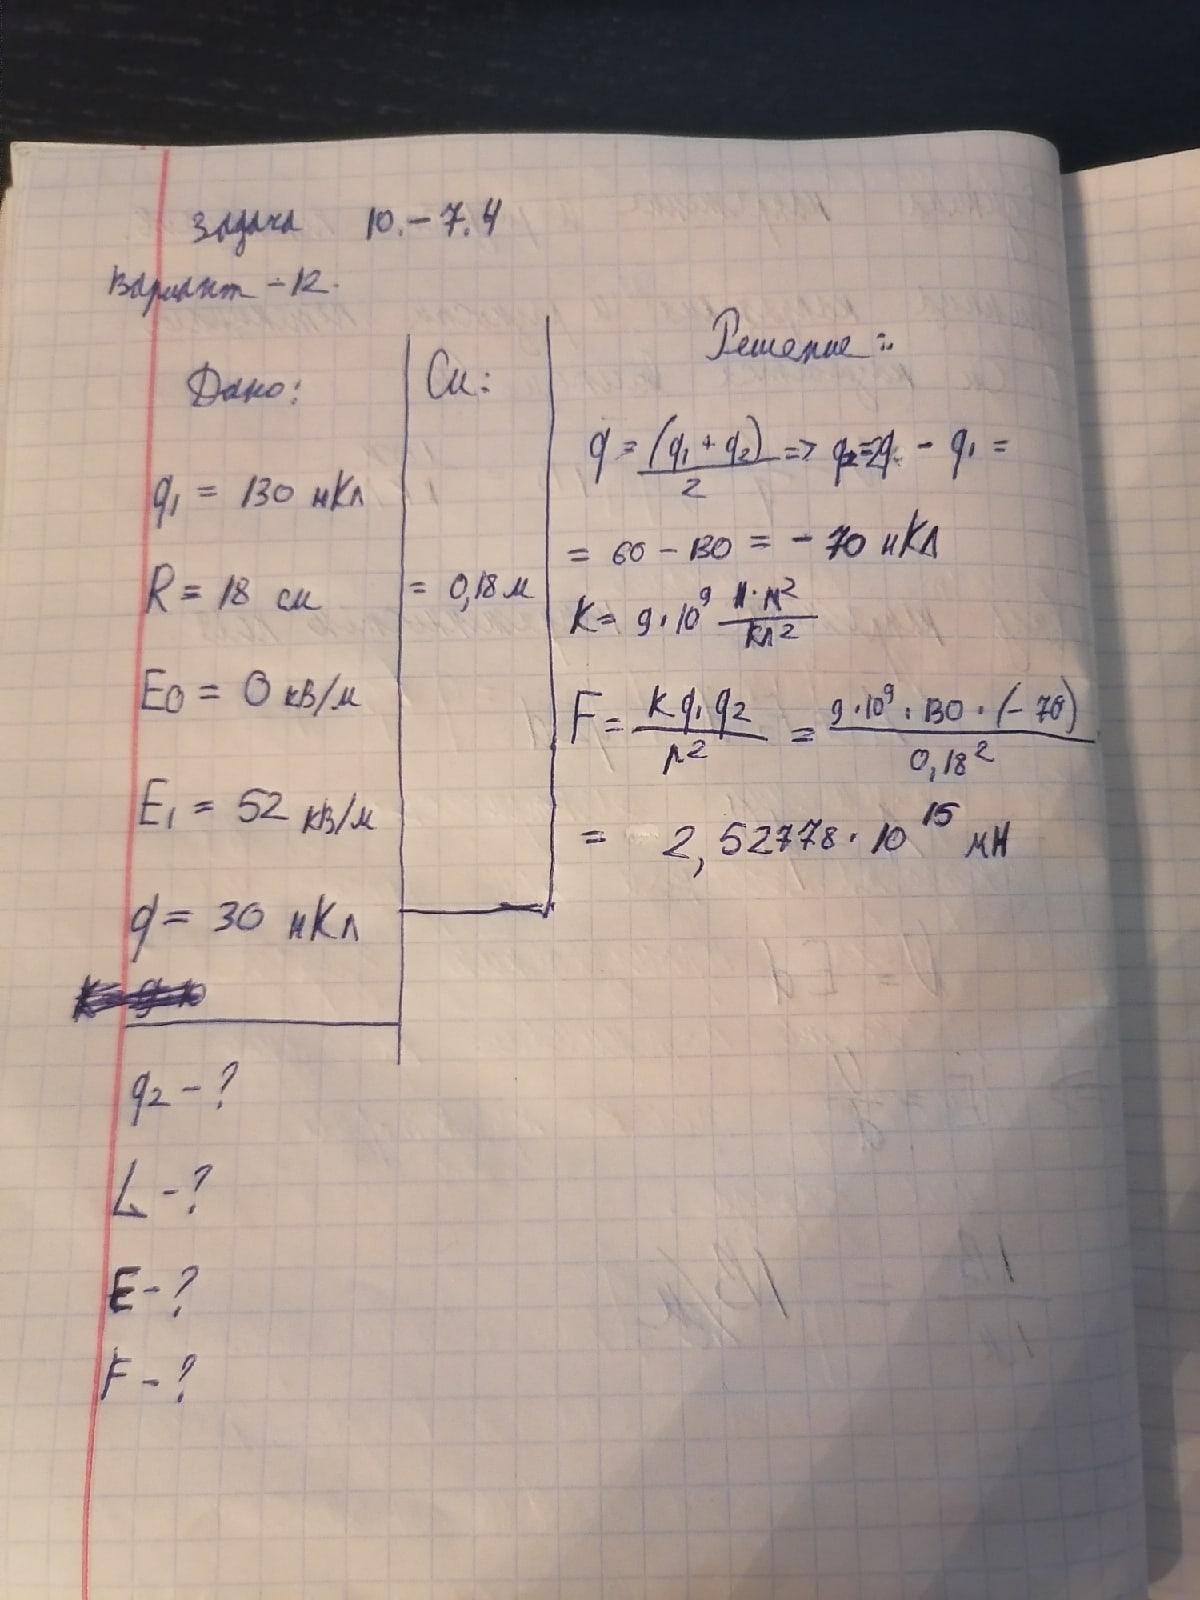 Задача 10.-7.4
Вариант -12.
Дано:
q₁ = 130 нКл
R = 18 см
E0 = 0 кВ/м
E₁ = 52 кВ/м
q = 30 нКл
q₂ - ?
L - ?
E - ?
F - ?
Си:
= 0,18 м
Решение:
q = (q₁ + q₂)/2 => q₂=2q - q₁ =
= 60 - 130 = - 70 нКл
K = 9·10⁹ Н·м²/Кл²
F = K q₁ q₂/r² = 9·10⁹·130·(-70)/0,18²
= 2,52778·10¹⁵ мН